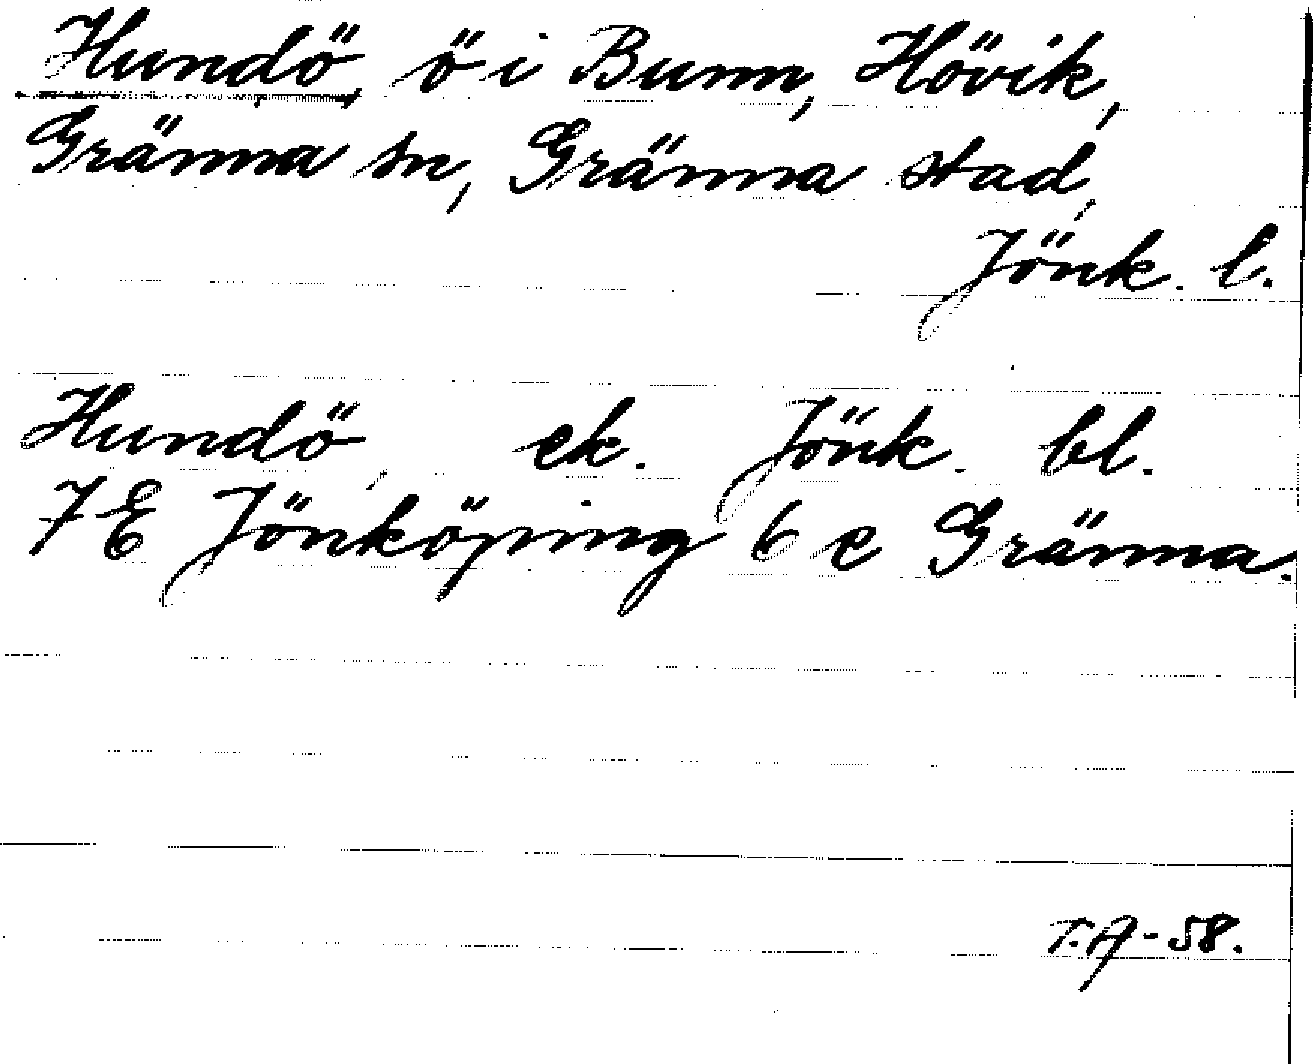 Hundö, ö i Bunn, Hövik,
Gränna sn, Gränna stad,
Jönk. l.
Hundö, ek. Jönk. bl.
7E Jönköping 6 e Gränna.
T.A-58.